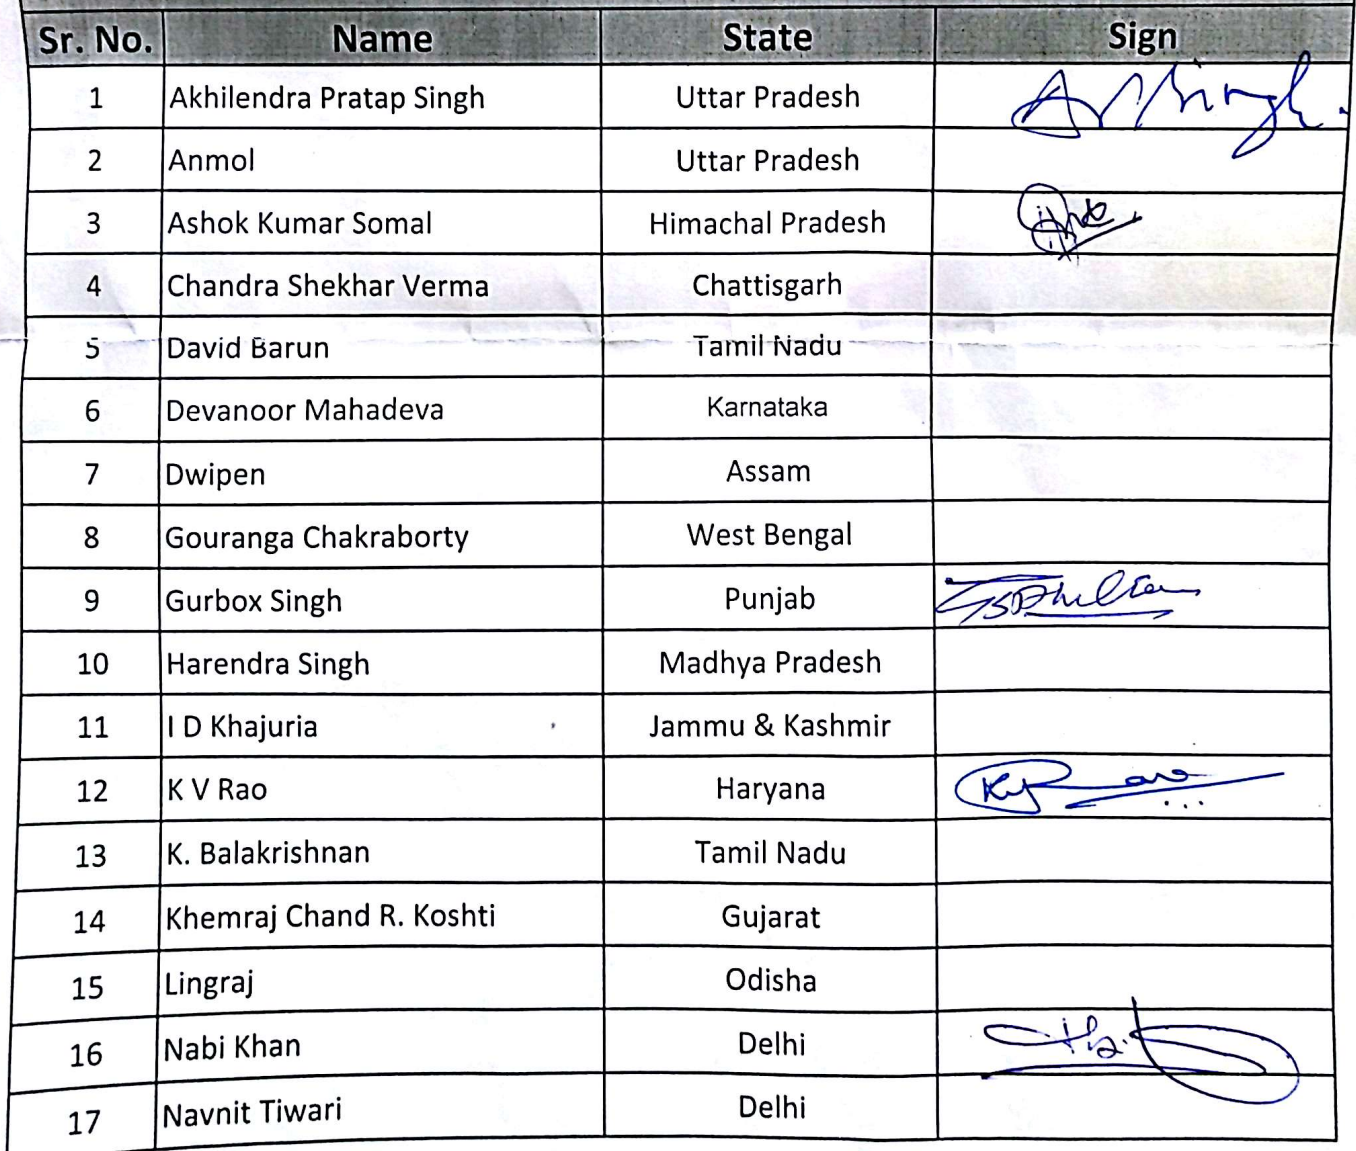 Sr. No. Name State Sign
1 Akhilendra Pratap Singh Uttar Pradesh
2 Anmol Uttar Pradesh
3 Ashok Kumar Somal Himachal Pradesh
4 Chandra Shekhar Verma Chattisgarh
5 David Barun Tamil Nadu
6 Devanoor Mahadeva Karnataka
7 Dwipen Assam
8 Gouranga Chakraborty West Bengal
9 Gurbox Singh Punjab
10 Harendra Singh Madhya Pradesh
11 I D Khajuria Jammu & Kashmir
12 K V Rao Haryana
13 K. Balakrishnan Tamil Nadu
14 Khemraj Chand R. Koshti Gujarat
15 Lingraj Odisha
16 Nabi Khan Delhi
17 Navnit Tiwari Delhi